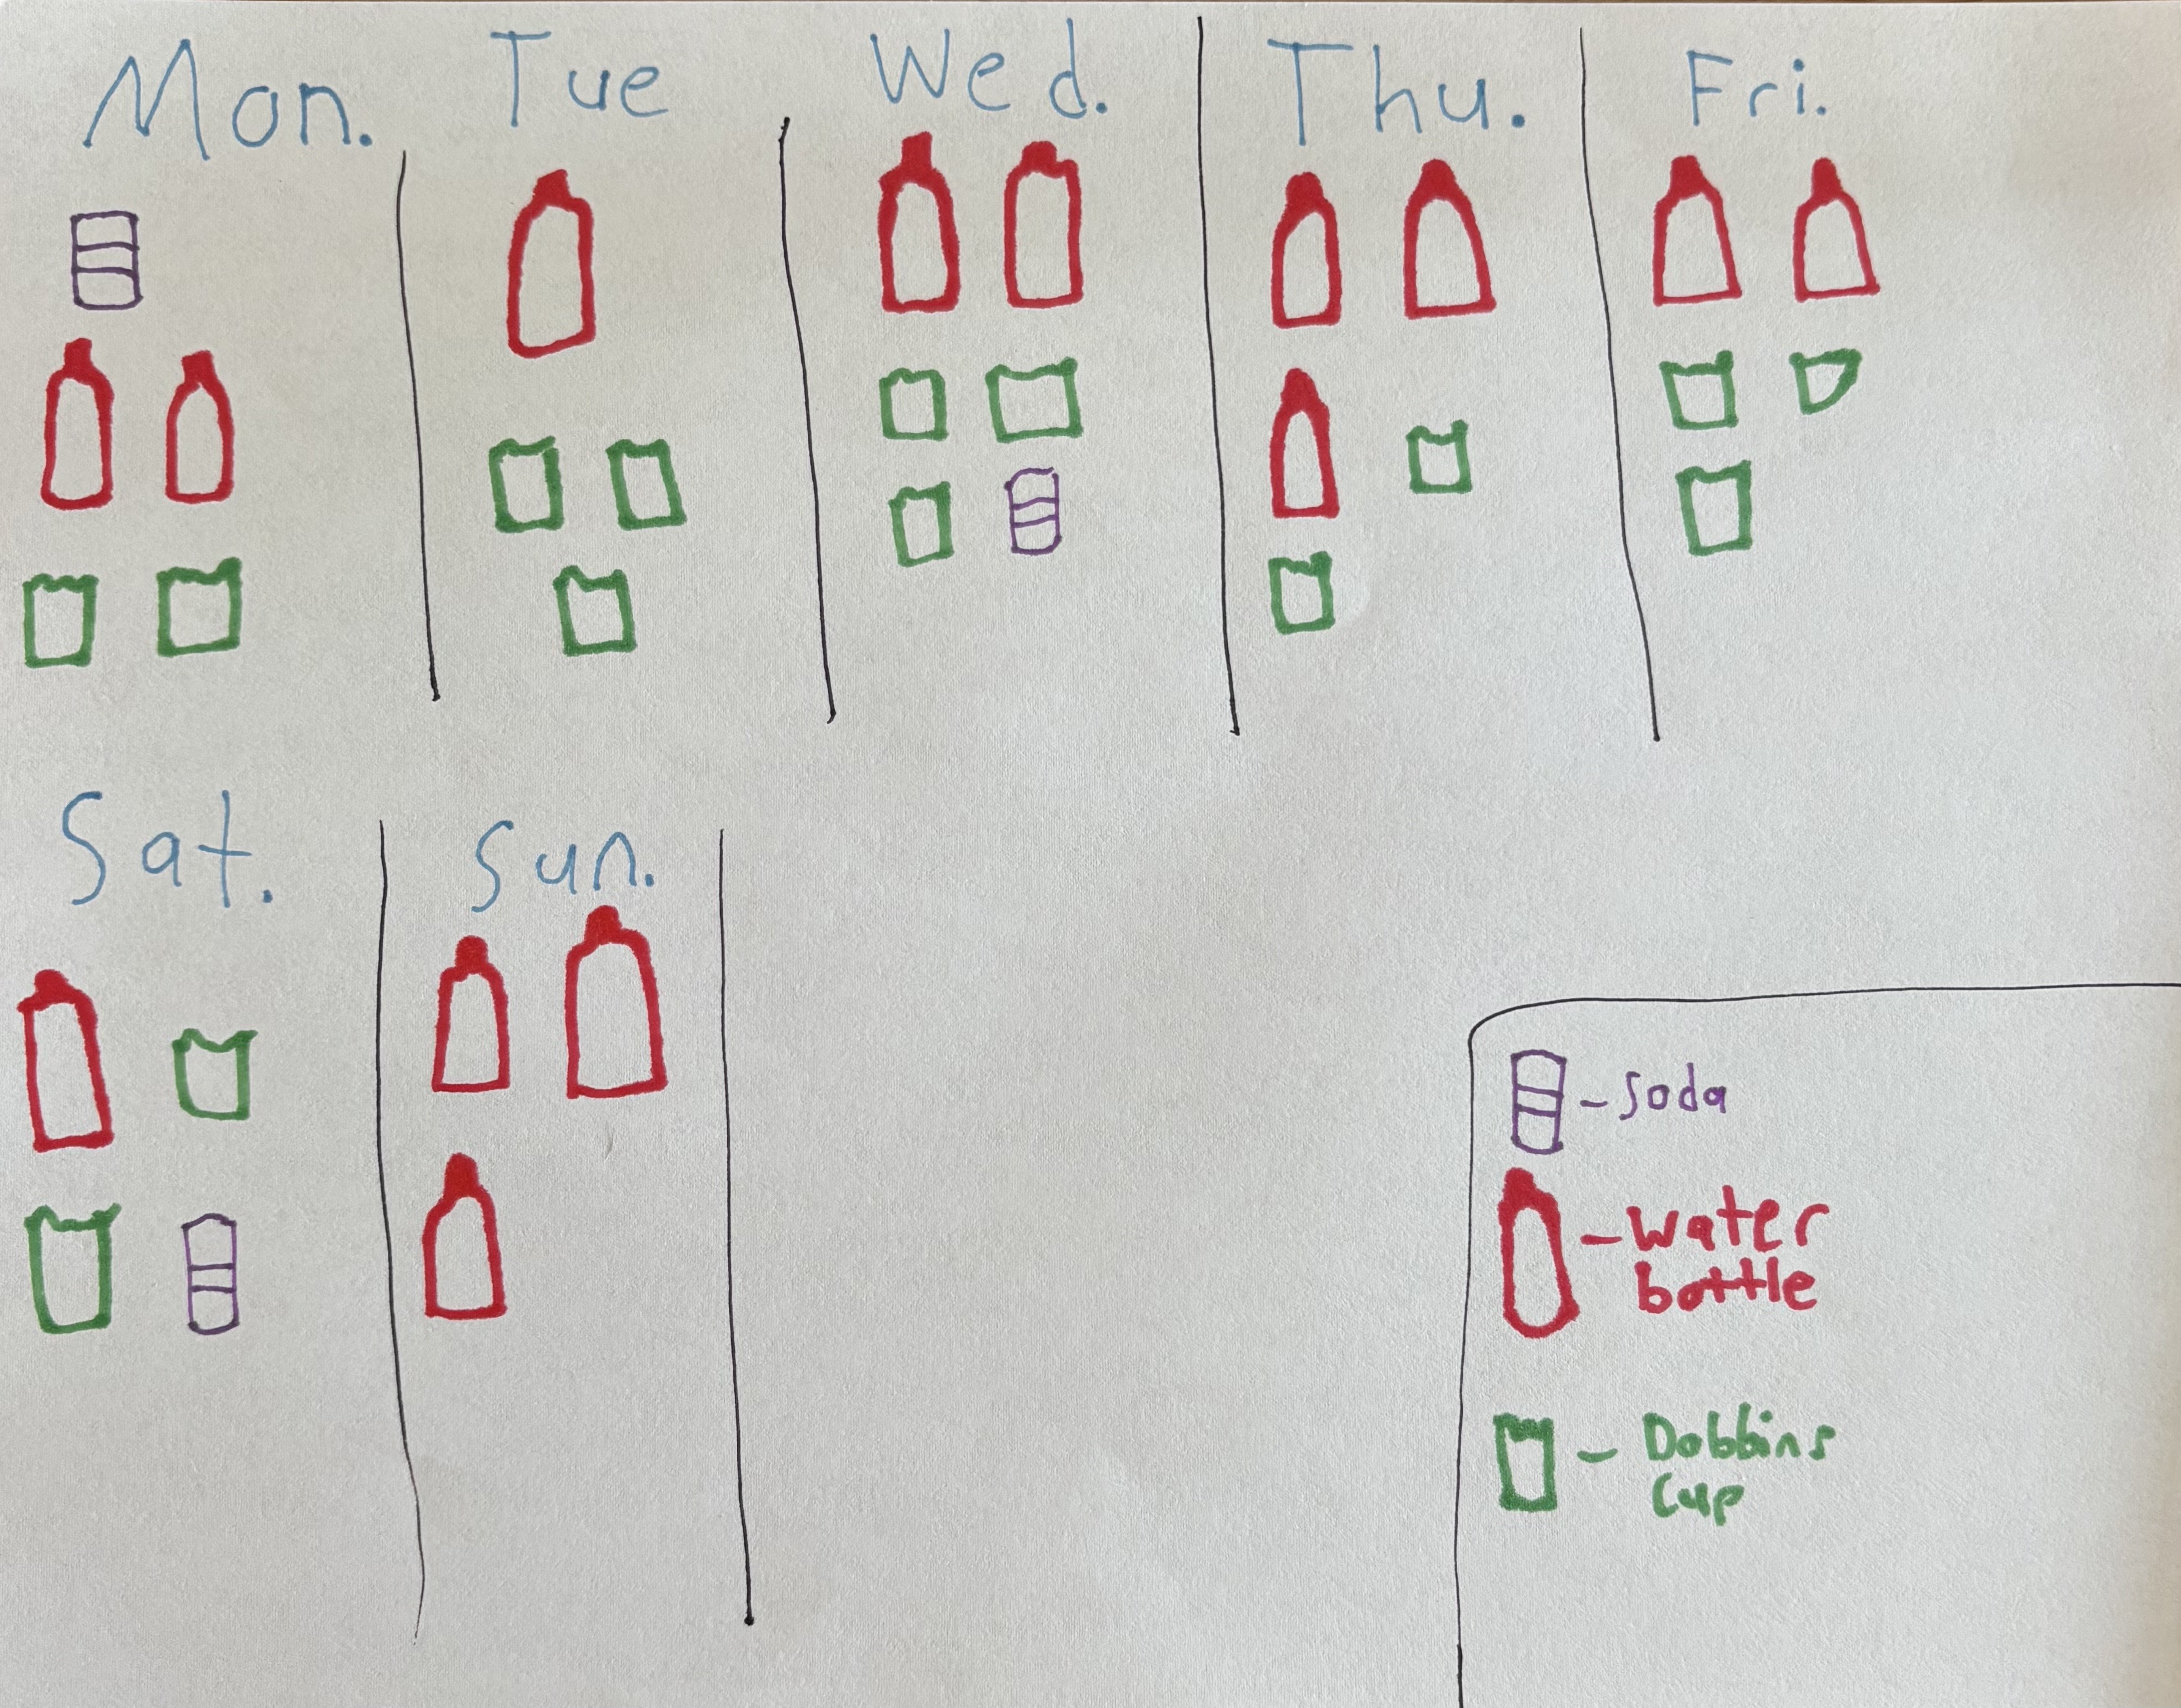 Mon. Tue Wed. Thu. Fri.
Sat. Sun.
- Soda
- Water
bottle
- Dobbins
Cup